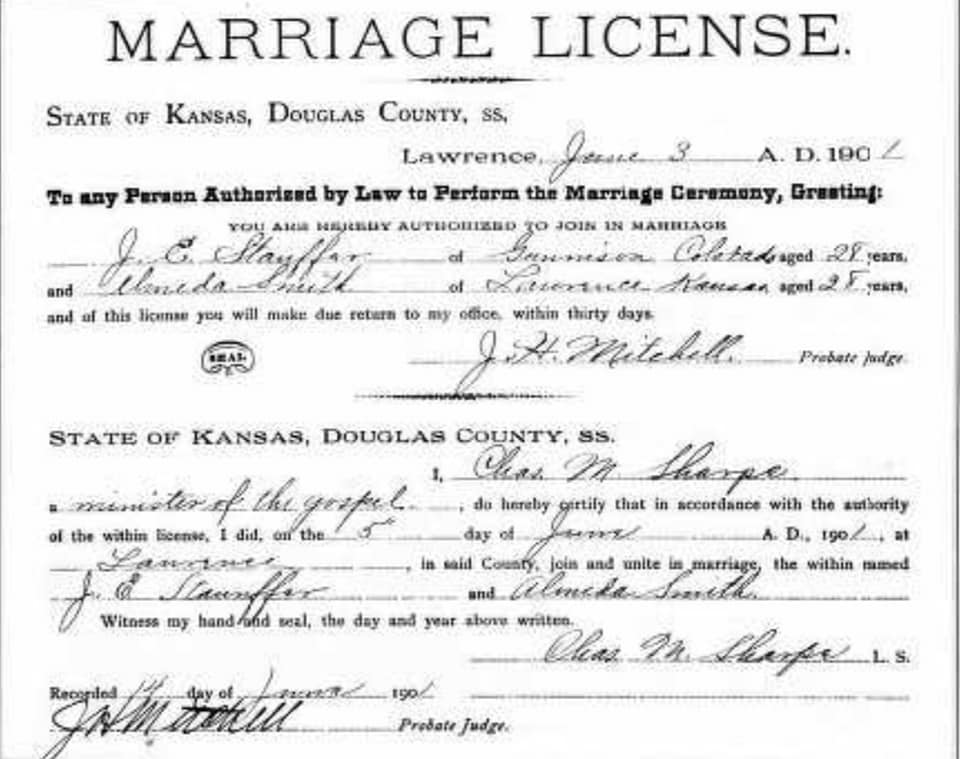 MARRIAGE LICENSE.
STATE OF KANSAS, DOUGLAS COUNTY, SS,
LAWRENCE, June 3 A. D. 1901
To any Person Authorized by Law to Perform the Marriage Ceremony, Greeting:
YOU ARE HEREBY AUTHORIZED TO JOIN IN MARRIAGE
J. E. Stauffer of Gunnison Colorado aged 28 years,
and Almeda Smith of Lawrence Kansas aged 28 years,
and of this license you will make due return to my office, within thirty days.
SEAL. J. H. Mitchell. Probate Judge.
STATE OF KANSAS, DOUGLAS COUNTY, SS.
I, Chas. M. Sharpe
a minister of the gospel, do hereby certify that in accordance with the authority
of the within license, I did, on the 5" day of June A. D., 1901, at
Lawrence, in said County, join and unite in marriage, the within named
J. E. Staunffer and Almeda Smith.
Witness my hand and seal, the day and year above written.
Chas. M. Sharpe L. S.
Recorded 14 day of June 1901
J H Mitchell Probate Judge.